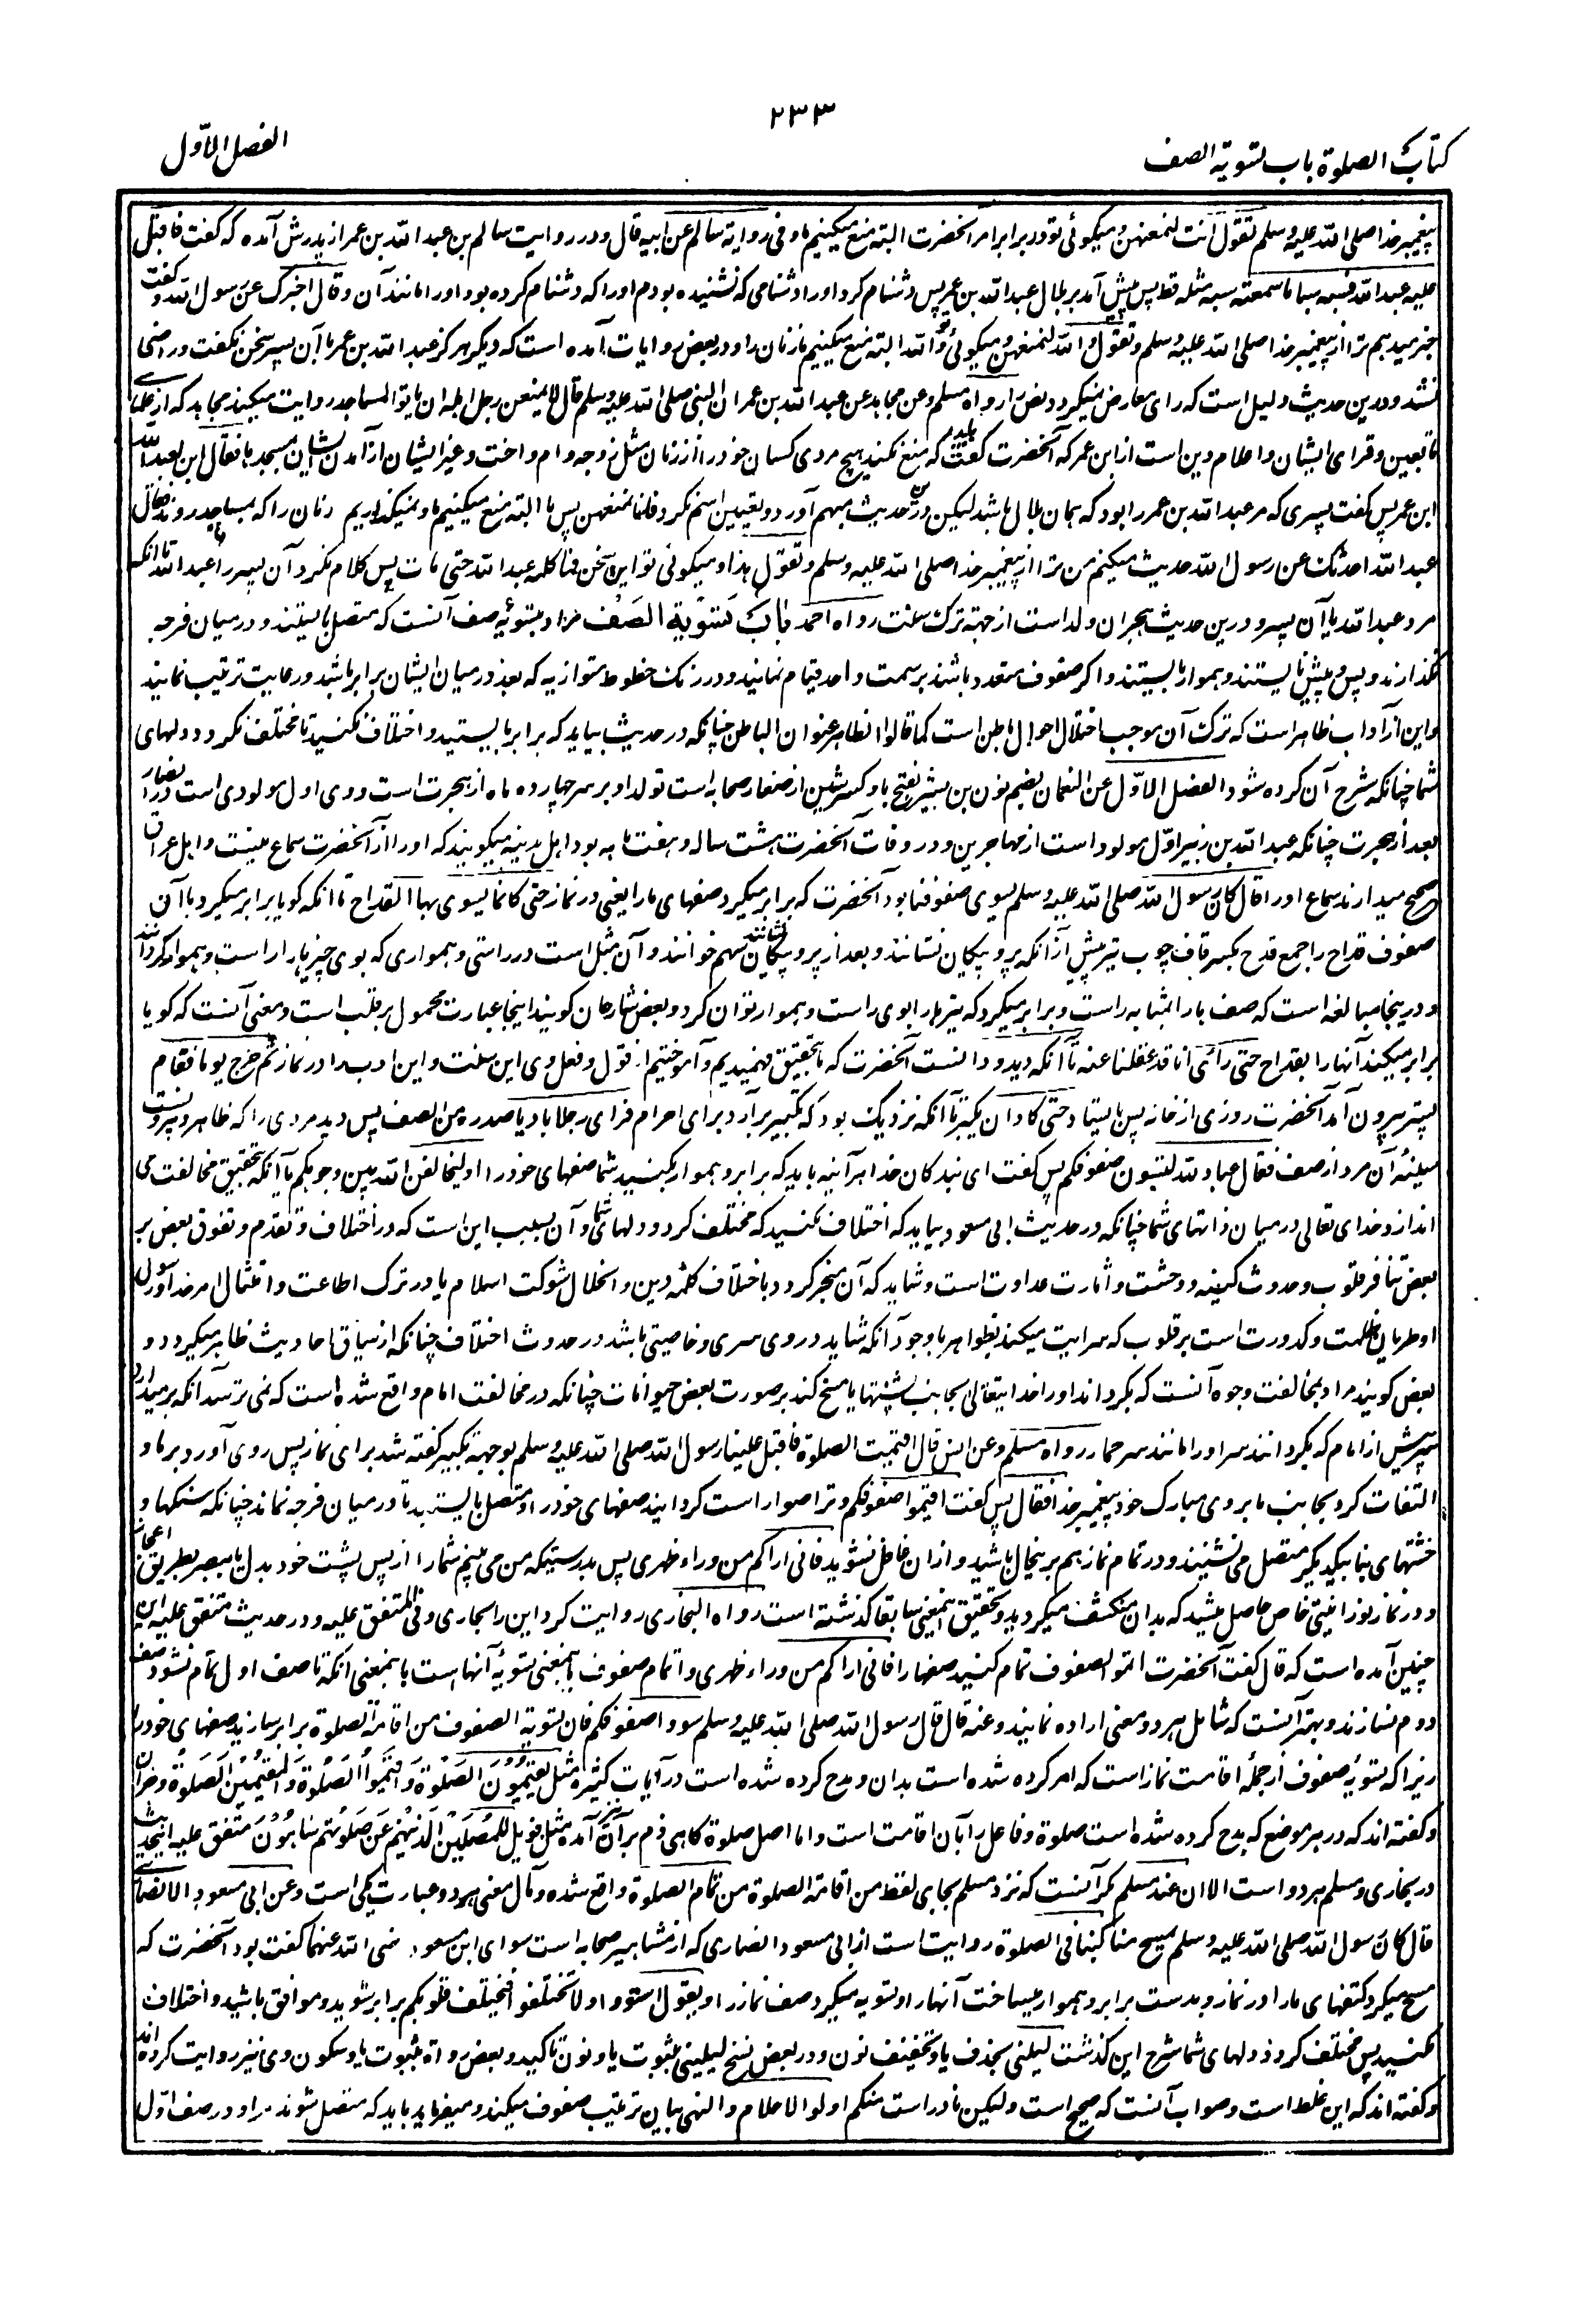 ۲۳۳
کتاب الصلوة باب تسویة الصف
الفصل الاول
پیغمبر خدا صلی الله علیه وسلم تقول انت لنمنعهن ومیگوئی تو در برابر امر آنحضرت البته منع میکنیم ما وفی روایة سالم عن ابیه قال ودر روایت سالم بن عبد الله بن عمر از پدرش آمده که گفت فاقبل
علیه عبد الله فسبه سبا ما سمعته سبه مثله قط پس پیش آمد بر بلال عبد الله بن عمر پس دشنام کرد او را دشنامی که نشنیده بودم او را که دشنام کرده بود او را مانند آن وقال اخبرک عن رسول الله وگفت
خبر میدهم ترا از پیغمبر خدا صلی الله علیه وسلم وتقول والله لنمنعهن ومیگوئی تو والله البته منع میکنیم ما زنان را ودر بعض روایات آمده است که دیگر هرگز عبد الله بن عمر با آن پسر سخن نگفت وراضی
نشد ودرین حدیث دلیل است که رای معارض نمیگردد نص را رواه مسلم وعن مجاهد عن عبد الله بن عمر ان النبی صلی الله علیه وسلم قال لا یمنعن رجل اهله ان یاتوا المساجد روایت میکند مجاهد که از علمای
تابعین وقرای ایشان واعلام دین است از ابن عمر که آنحضرت گفت که باید که منع نکند هیچ مردی کسان خود را از زنان مثل زوجه وام واخت وغیر ایشان از آمدن ایشان مسجد را فقال ابن لعبد الله
ابن عمر پس گفت پسری که مر عبد الله بن عمر را بود که همان بلال باشد لیکن درین حدیث مبهم آورد وتعیین اسم نکرد فانا نمنعهن پس ما البته منع میکنیم ما ونمیگذاریم زنان را که بمساجد روند فقال
عبد الله احدثک عن رسول الله حدیث میکنم من ترا از پیغمبر خدا صلی الله علیه وسلم وتقول هذا ومیگوئی تو این سخن فما کلمه عبد الله حتی مات پس کلام نکرد آن پسر را عبد الله تا آنکه
مرد عبد الله یا آن پسر ودرین حدیث هجران ولد است از جهة ترک سنت رواه احمد باب تسویة الصف مراد بتسویه صف آنست که متصل بایستند ودر میان فرجه
نگذارند وپس وپیش نایستند وهموار بایستند واگر صفوف متعدد باشند بر سمت واحد قیام نمایند ودر رنگ خطوط متوازیه که بعد در میان ایشان برابر باشد ورعایت ترتیب نمایند
واین از آداب ظاهر است که ترک آن موجب اختلال احوال باطن است کما قالوا الظاهر عنوان الباطن چنانکه در حدیث بیاید که برابر بایستید واختلاف نکنید تا مختلف نگردد دلهای
شما چنانکه شرح آن کرده شود الفصل الاول عن النعمان بضم نون بن بشیر بفتح با وکسر شین از صغار صحابه است تولد او بر سر چهارده ماه از هجرت است ووی اول مولودی است در انصار
بعد از هجرت چنانکه عبد الله بن زبیر اول مولود است از مهاجرین ودر وفات آنحضرت هشت ساله وهفت ماهه بود اهل مدینه میگویند که او را از آنحضرت سماع نیست واهل عراق
صحیح میدارند سماع او را قال کان رسول الله صلی الله علیه وسلم یسوی صفوفنا بود آنحضرت که برابر میکرد صفهای ما را یعنی در نماز حتی کانما یسوی بها القداح تا آنکه گویا برابر میکرد با آن
صفوف قداح را جمع قدح بکسر قاف چوب تیر پیش از آنکه پر وپیکان نشانند وبعد از پر وپیکان نشانند سهم خوانند وآن مثل است در راستی وهمواری که بوی چیزها را راست وهموار گردانند
ودرینجا مبالغه است که صف ها را بمثابه راست وبرابر میکرد که تیرها را بوی راست وهموار توان کرد وبعض شارحان گویند اینجا عبارت محمول بر قلب است ومعنی آنست که گویا
برابر میکند آنها را بقداح حتی رای انا قد عقلنا عنه تا آنکه دید ودانست آنحضرت که ما بتحقیق فهمیدیم وآموختیم از قول وفعل وی این سنت واین ادب را در نماز ثم خرج یوما فقام
پستر بیرون آمد آنحضرت روزی از خانه پس بایستاد حتی کاد ان یکبر تا آنکه نزدیک بود که تکبیر برآرد برای احرام فرای رجلا بادیا صدره من الصف پس دید مردی را که ظاهر وبیرونست
سینه آن مرد از صف فقال عباد الله لتسون صفوفکم پس گفت ای بندگان خدا هر آئینه باید که برابر وهموار بکنید شما صفهای خود را او لیخالفن الله بین وجوهکم یا آنکه بتحقیق مخالفت می
اندازد خدای تعالی در میان ذاتهای شما چنانکه در حدیث ابی مسعود بیاید که اختلاف نکنید که مختلف گردد دلهای شما وآن بسبب این است که در اختلاف وتقدم وتفوق بعض بر
بعض تنافر قلوب وحدوث کینه ووحشت واثارت عداوت است وشاید که آن منجر گردد باختلاف کلمه دین واخلال شوکت اسلام یا در ترک اطاعت وامتثال امر خدا ورسول
او طریان ظلمت وکدورت است بر قلوب که سرایت میکند بظواهر با وجود آنکه شاید در وی سری وخاصیتی باشد در حدوث اختلاف چنانکه از سیاق احادیث ظاهر میگردد و
بعض گویند مراد بمخالفت وجوه آنست که بگرداند او را خدا تعالی بجانب پشتها یا مسخ کند بر صورت بعض حیوانات چنانکه در مخالفت امام واقع شده است که نمی ترسد آنکه بر میدارد
سر پیش از امام که بگردانند سر او را مانند سر حمار رواه مسلم وعن انس قال اقیمت الصلوة فاقبل علینا رسول الله صلی الله علیه وسلم بوجهه تکبیر گفته شد برای نماز پس روی آورد بر ما و
التفات کرد بجانب ما بروی مبارک خود پیغمبر خدا فقال پس گفت اقیموا صفوفکم وتراصوا راست گردانید صفهای خود را ومتصل بایستید تا در میان فرجه نماند چنانکه سنگها و
خشتهای بنا بیکدیگر متصل می نشینند ودر تمام نماز هم برینحال باشید وازان غافل نشوید فانی اراکم من وراء ظهری پس بدرستیکه من می بینم شما را از پس پشت خود بدل یا ببصر بطریق اعجاز
ودر نماز نورانیتی خاص حاصل میشد که بدان منکشف میگردید وتحقیق اینمعنی سابقا گذشته است رواه البخاری روایت کرد این را بخاری وفی المتفق علیه ودر حدیث متفق علیه این
چنین آمده است که قال گفت آنحضرت اتموا الصفوف تمام کنید صفها را فانی اراکم من وراء ظهری واتمام صفوف یا بمعنی تسویه آنهاست یا بمعنی آنکه تا صف اول تمام نشود صف
دوم نسازند وبهتر آنست که شامل هر دو معنی اراده نمایند وعنه قال قال رسول الله صلی الله علیه وسلم سووا صفوفکم فان تسویة الصفوف من اقامة الصلوة برابر سازید صفهای خود را
زیرا که تسویه صفوف از جمله اقامت نماز است که امر کرده شده است بدان ومدح کرده شده است در آیات کثیره مثل یقیمون الصلوة واقیموا الصلوة والمقیمین الصلوة وجز آن
وگفته اند که در هر موضع که مدح کرده شده است صلوة وفاعل را بآن اقامت است واما اصل صلوة گاهی ذم بر آن نیز آمده مثل فویل للمصلین الذین هم عن صلوتهم ساهون متفق علیه اینحدیث
در بخاری ومسلم هر دو است الا ان عند مسلم مگر آنست که نزد مسلم بجای لفظ من اقامة الصلوة من تمام الصلوة واقع شده ومآل معنی هر دو عبارت یکی است وعن ابی مسعود الانصاری
قال کان رسول الله صلی الله علیه وسلم یمسح مناکبنا فی الصلوة روایت است از ابی مسعود انصاری که از مشاهیر صحابه است سوای ابن مسعود رضی الله عنهما گفت بود آنحضرت که
مسح میکرد کتفهای ما را در نماز وبدست برابر وهموار میساخت آنها را وتسویه میکرد صف نماز را ویقول استووا ولا تختلفوا فتختلف قلوبکم برابر شوید وموافق باشید واختلاف
مکنید پس مختلف گردد دلهای شما شرح این گذشت لیلنی بحذف یا وتخفیف نون ودر بعض نسخ لیلینی بثبوت یا ونون تاکید وبعض رواة بثبوت یا وسکون وی نیز روایت کرده اند
وگفته اند که این غلط است وصواب آنست که صحیح است ولیکن نادر است منکم اولوا الاحلام والنهی بیان ترتیب صفوف میکند ومیفرماید باید که متصل شوند مرا ودر صف اول